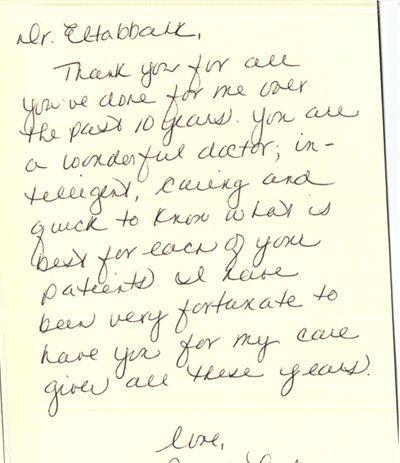 Dr. Eltabbakk,
Thank you for all
you've done for me over
the past 10 years. You are
a wonderful doctor; in-
telligent, caring and
quick to know what is
best for each of your
patients. I have
been very fortunate to
have you for my care
giver all these years.
love,